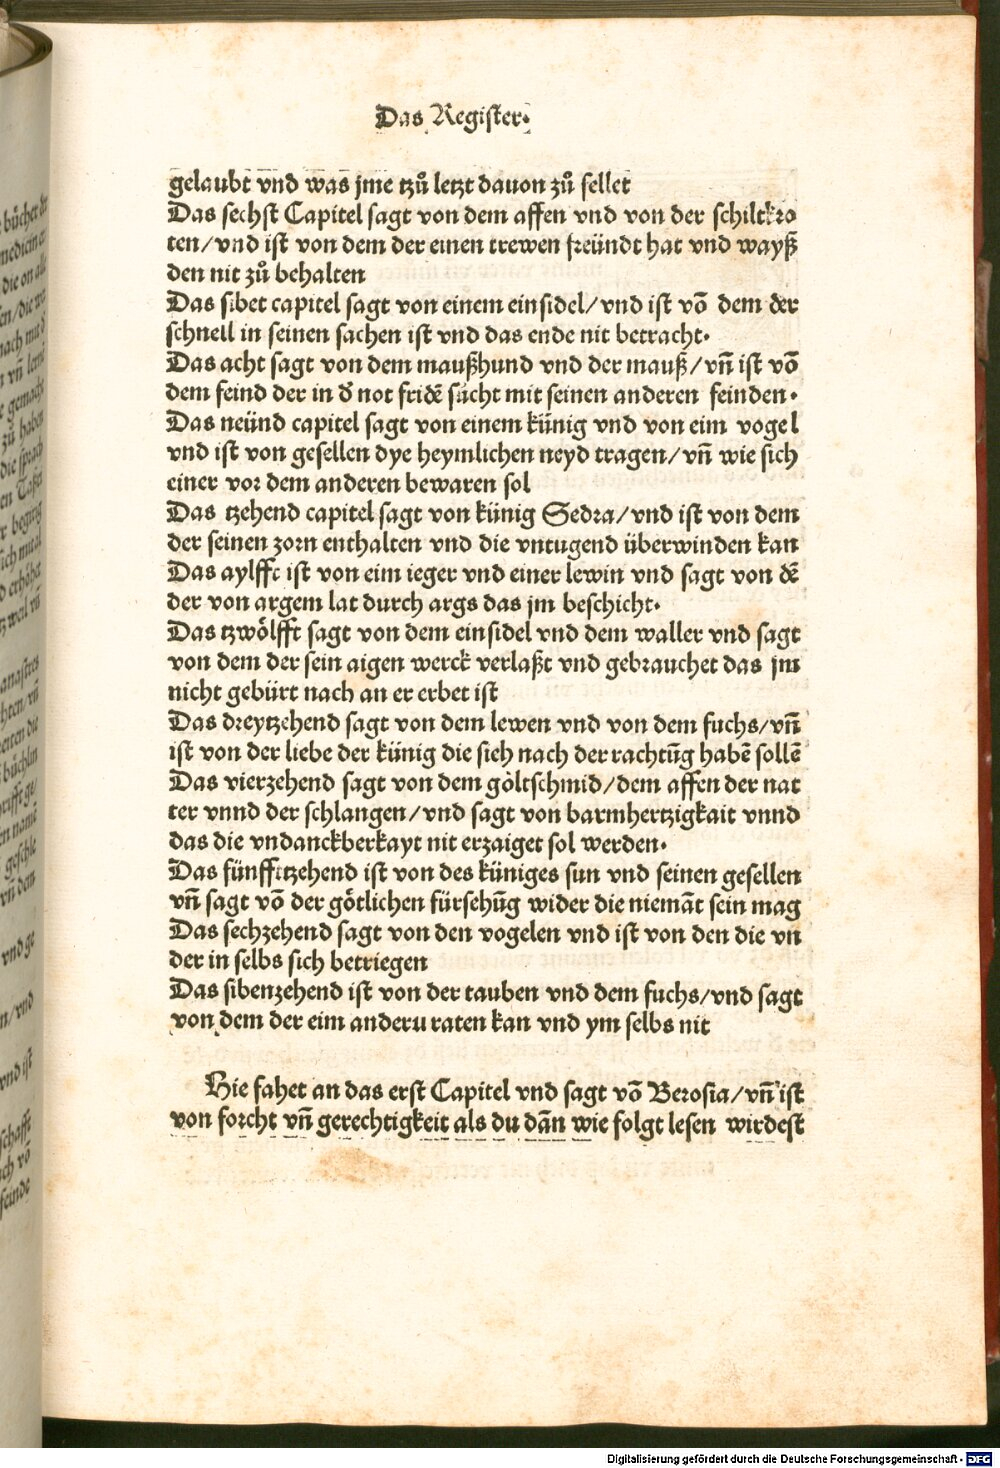 Das Register.
gelaubt vnd was jme tzuͦ letzt dauon zuͦ fellet
Das sechst Capitel sagt von dem affen vnd von der schiltkro
ten/vnd ist von dem der einen trewen freündt hat vnd wayß
den nit zuͦ behalten
Das sibet capitel sagt von einem einsidel/vnd ist võ dem der
schnell in seinen sachen ist vnd das ende nit betracht.
Das acht sagt von dem maußhund vnd der mauß/vñ ist võ
dem feind der in d̕ not fridẽ suͤcht mit seinen anderen feinden.
Das neünd capitel sagt von einem künig vnd von eim vogel
vnd ist von gesellen dye heymlichen neyd tragen/vñ wie sich
einer vor dem anderen bewaren sol
Das tzehend capitel sagt von künig Sedra/vnd ist von dem
der seinen zorn enthalten vnd die vntugend überwinden kan
Das aylfft ist von eim ieger vnd einer lewin vnd sagt von dẽ
der von argem lat durch args das jm beschicht.
Das tzwoͤlfft sagt von dem einsidel vnd dem waller vnd sagt
von dem der sein aigen werck verlaßt vnd gebrauchet das jm
nicht gebürt nach an er erbet ist
Das dreytzehend sagt von dem lewen vnd von dem fuchs/vñ
ist von der liebe der künig die sich nach der rachtũg habẽ sollẽ
Das vierzehend sagt von dem goͤltschmid/dem affen der nat
ter vnnd der schlangen/vnd sagt von barmhertzigkait vnnd
das die vndanckberkayt nit erzaiget sol werden.
Das fünfftzehend ist von des küniges sun vnd seinen gesellen
vñ sagt võ der goͤtlichen fürsehũg wider die niemãt sein mag
Das sechzehend sagt von den vogelen vnd ist von den die vn
der in selbs sich betriegen
Das sibenzehend ist von der tauben vnd dem fuchs/vnd sagt
von dem der eim anderu raten kan vnd ym selbs nit
Hie fahet an das erst Capitel vnd sagt võ Berosia/vñ ist
von forcht vñ gerechtigkeit als du dãn wie folgt lesen wirdest
Digitalisierung gefördert durch die Deutsche Forschungsgemeinschaft - DFG